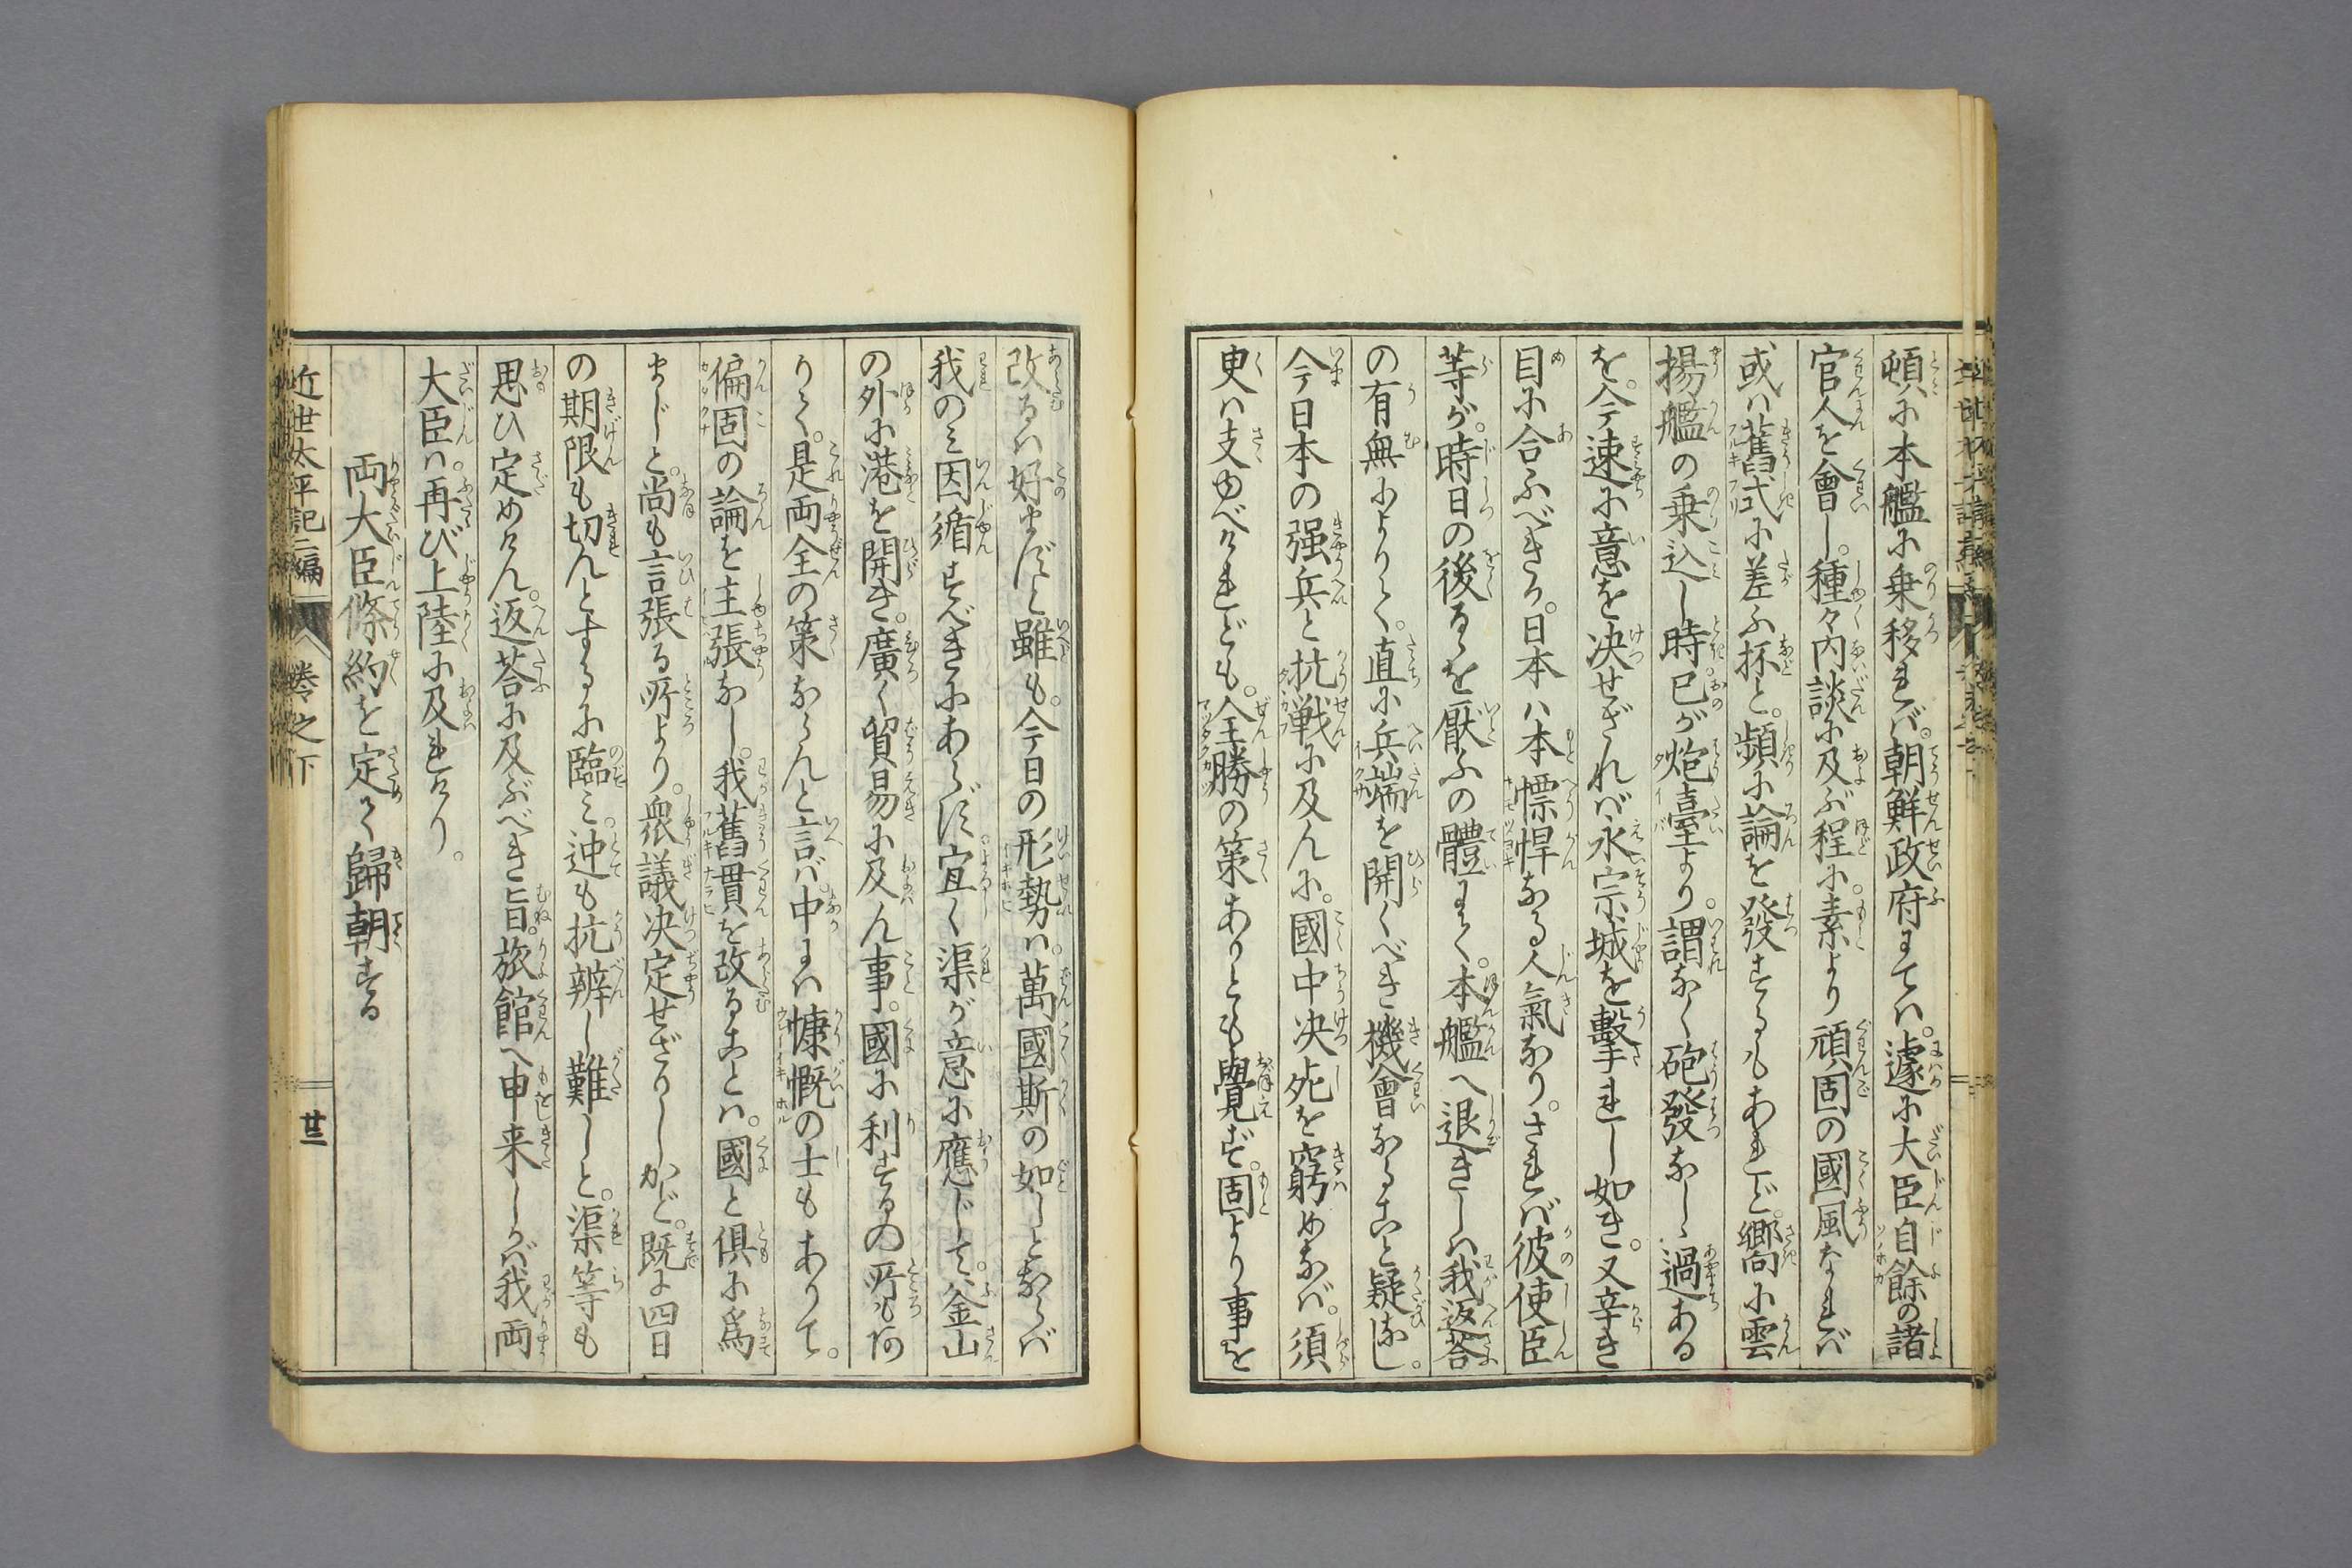 頓に本艦に乗移れバ。朝鮮政府にてハ。遽に大臣自餘の諸
官人を會し。種々内談に及ぶ程に。素より頑固の國風なれバ
或ハ舊式に差ふ抔と。頻に論を發するもあれど。嚮に雲
揚艦の乗込し時。己が炮臺より。謂なく砲發なし。過ある
を。今速に意を决せざれバ。永宗城を擊れし如き。又辛き
目に合ふべきか。日本ハ本慓悍なる人氣なり。されバ彼使臣
等が。時日の後るゝを厭ふの體にて。本艦へ退きしハ我返荅
の有無によりて。直に兵端を開くべき機會なること疑なし。
今日本の强兵と抗戦に及んに。國中决死を窮めなバ。須
臾ハ支ゆべけれども。全勝の策ありとも覺ず。固より事を
改るハ好まずと雖も。今日の形勢ハ。萬國斯の如しとならバ
我のミ因循すべきにあらず。宜く渠が意に應じて。釜山
の外に港を開き。廣く貿易に及ん事。國に利するの所も阿
りて。是両全の策ならんと言バ。中にハ慷慨の士もありて。
偏固の論を主張なし。我舊貫を改ることハ。國と倶に爲
まじと。尚も言張る所より。衆議决定せざりしかど。既に四日
の期限も切んとするに臨ミ。迚も抗辨し難しと。渠等も
思ひ定めけん。返荅に及ぶべき旨。旅館へ申来しかバ我両
大臣ハ。再び上陸に及れけり。
両大臣條約を定て歸朝する
近世太平記二編
巻之下
廿三